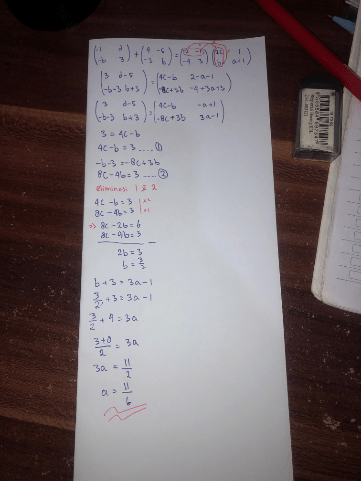 (-1 d) + (4 -5) = (2 -1) (2c 1)
(-b 3) (-3 b) (-4 3) (b a+1)
(3 d-5) = (4c-b 2-a-1)
(-b-3 b+3) (-8c+3b -4+3a+3)
(3 d-5) = (4c-b -a+1)
(-b-3 b+3) (-8c+3b 3a-1)
3 = 4c-b
4c-b = 3 ..... ①
-b-3 = -8c+3b
8c-4b = 3 ..... ②
Eliminasi 1 & 2
4c -b = 3 | x2
8c -4b = 3 | x1
=> 8c-2b = 6
8c-4b = 3 -
2b = 3
b = 3/2
b+3 = 3a-1
3/2 + 3 = 3a-1
3/2 + 4 = 3a
3+8/2 = 3a
3a = 11/2
a = 11/6